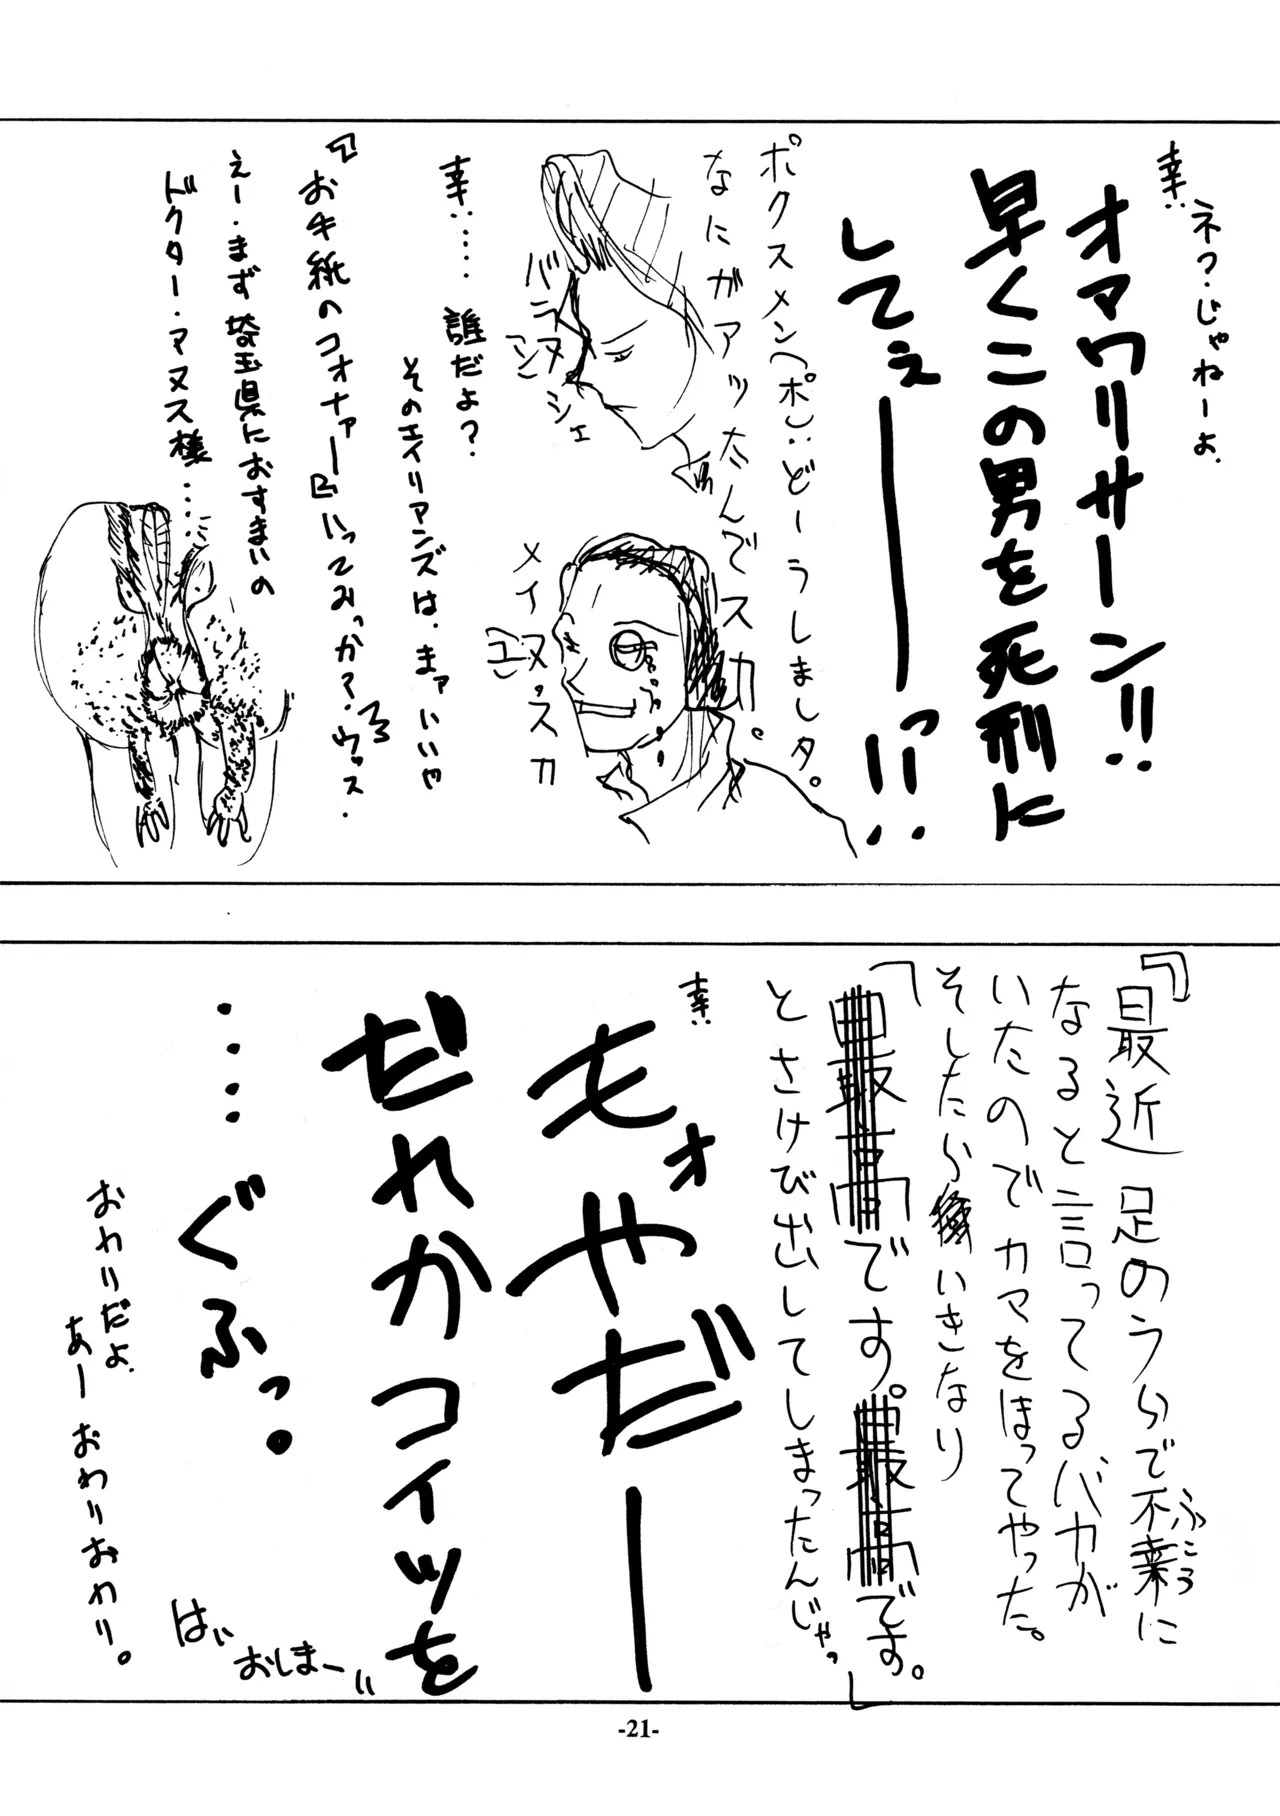 幸: ネ?・じゃねーよ、
オマワリサーン!!
早くこの男を死刑に
してぇ――っ!!
ポクスメン(ポ): どーうしましタ。
なにがアッたんでスカ。
バラヌシェ
メイヌッスカ
幸:…… 誰だよ?
そのエイリアンズは、まァいいや
『お手紙のコォナァー』いってみっか?ウッス・
えー・まず埼玉県におすまいの
ドクター・アヌス様……
『最近 足のうらで不幸に
ふこう
なると言ってるバカが
いたのでカマをほってやった。
そしたら いきなり
「最高です。最高です。」
とさけび出してしまったんじゃっ
幸:
もォやだー
だれかコイツを
・・・・ぐふっ。
おわりだよ、
あーおわりおわり。
はい
おしまーい
-21-